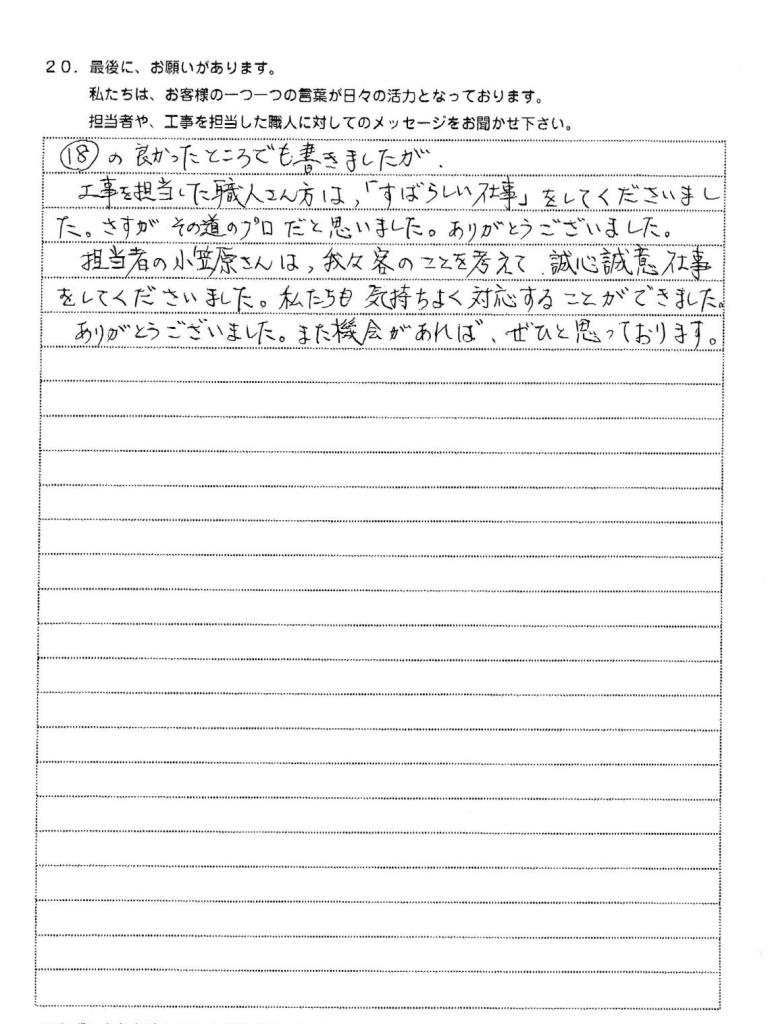 20．最後に、お願いがあります。
私たちは、お客様の一つ一つの言葉が日々の活力となっております。
担当者や、工事を担当した職人に対してのメッセージをお聞かせ下さい。
⑱の良かったところでも書きましたが、
工事を担当した職人さん方は，「すばらしい仕事」をしてくださいまし
た。さすがその道のプロだと思いました。ありがとうございました。
担当者の小笠原さんは，我々客のことを考えて、誠心誠意仕事
をしてくださいました。私たちも気持ちよく対応することができました。
ありがとうございました。また機会があれば、ぜひと思っております。